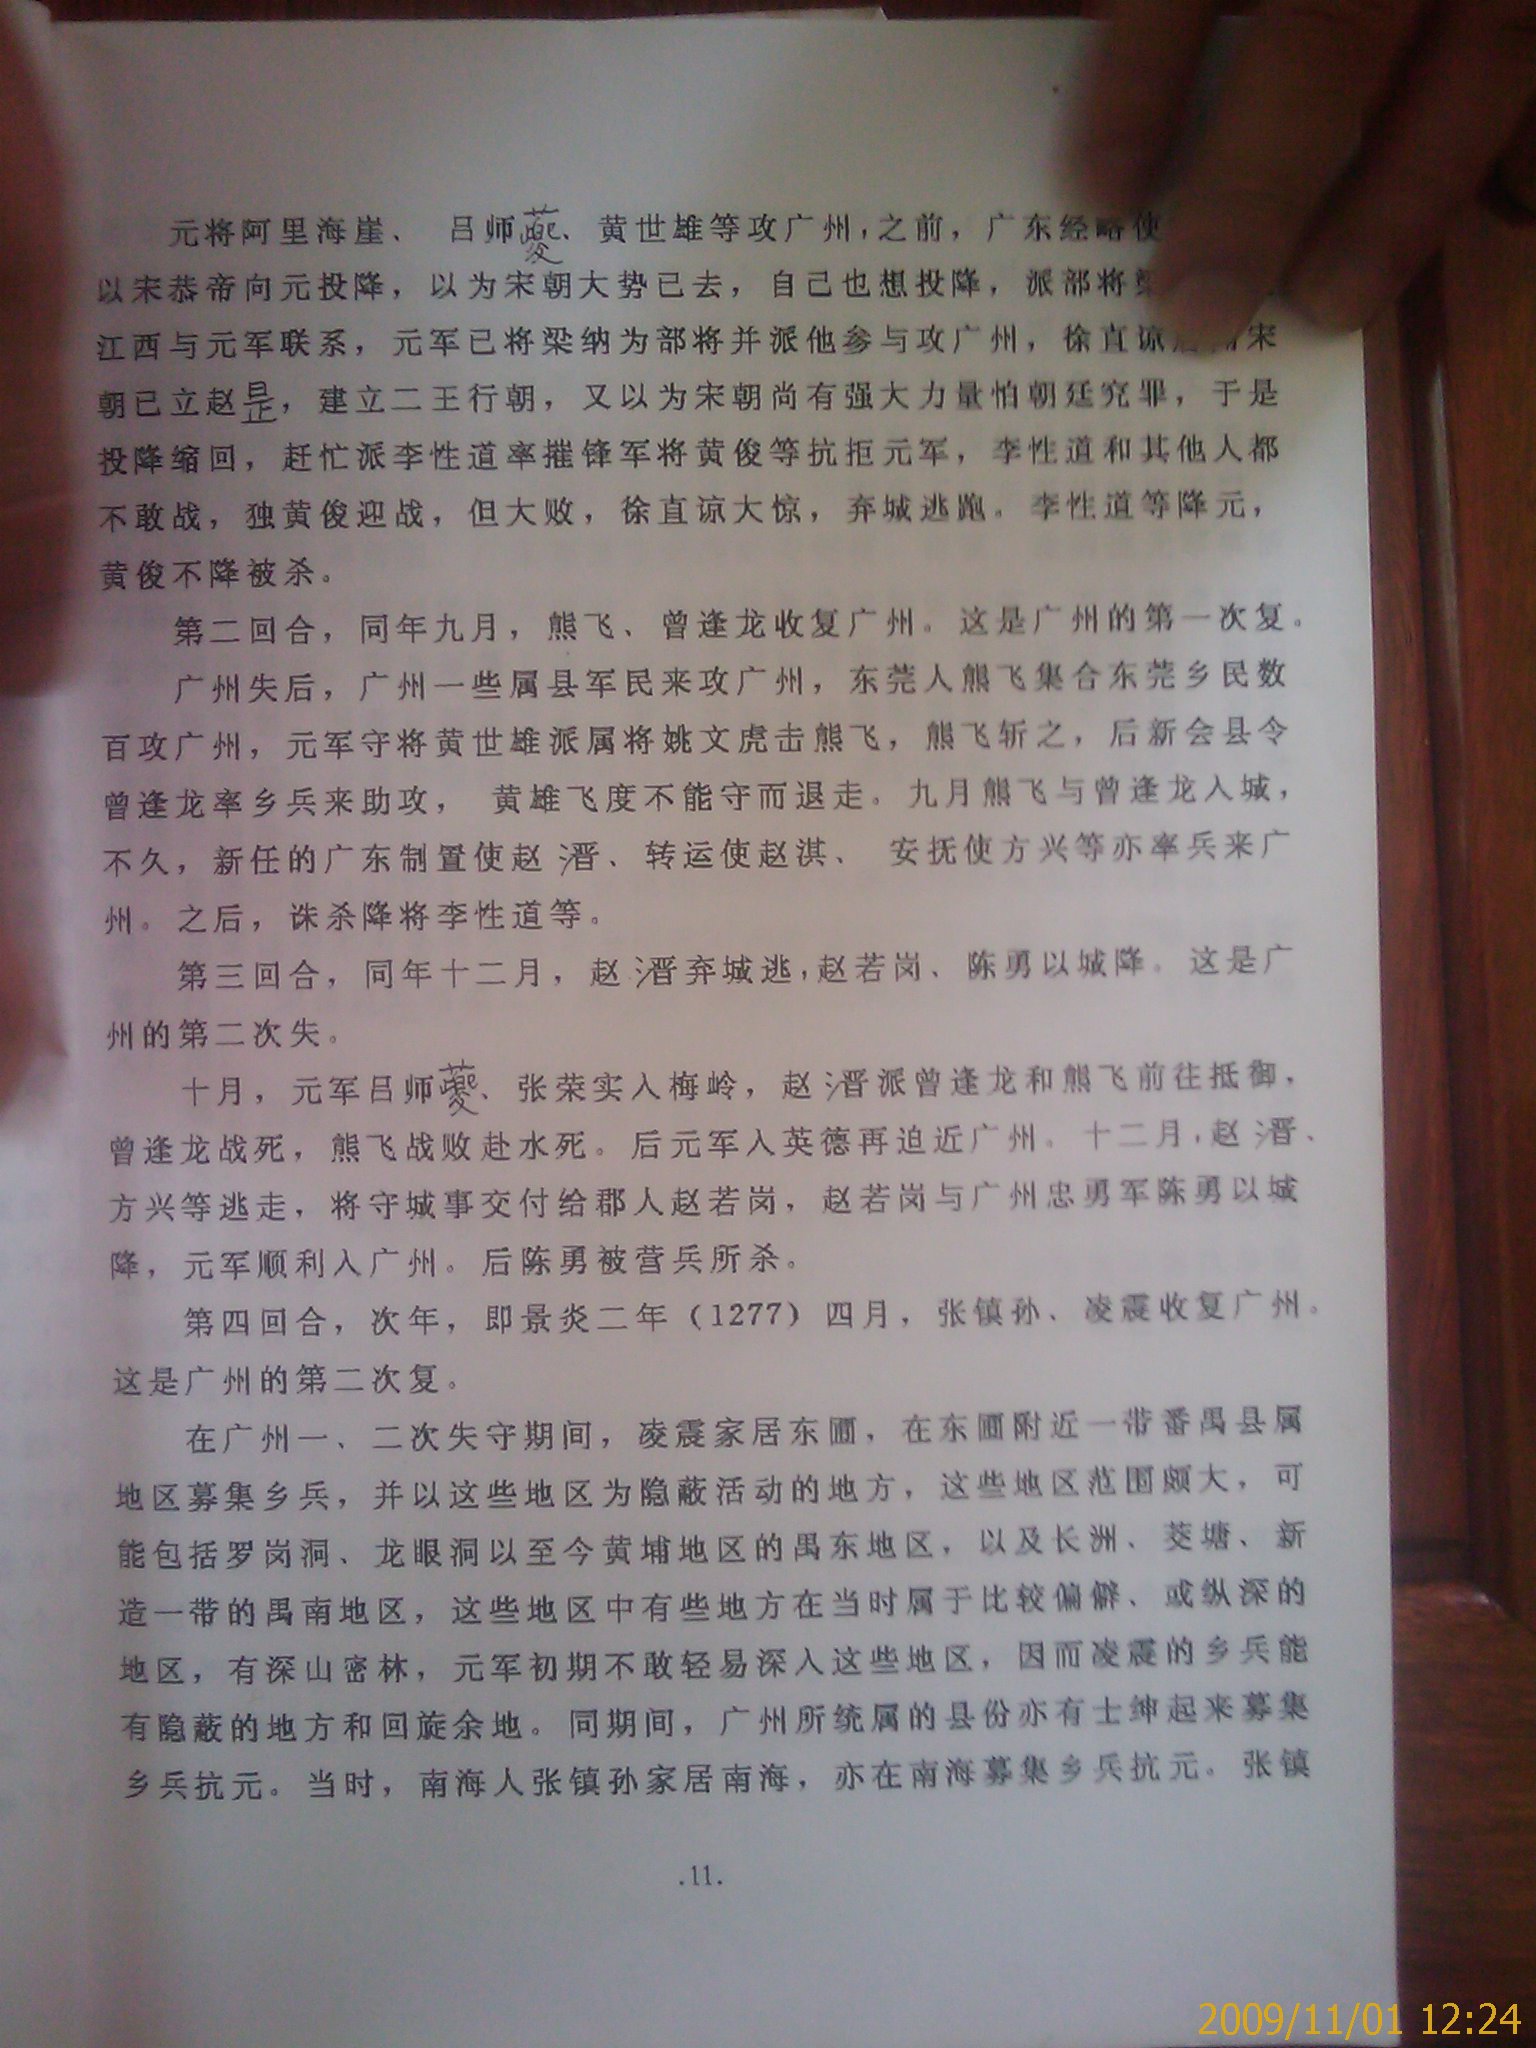 元将阿里海崖、 吕师夔、黄世雄等攻广州,之前,广东经略使
以宋恭帝向元投降,以为宋朝大势已去,自己也想投降,派部将梁
江西与元军联系,元军已将梁纳为部将并派他参与攻广州,徐直谅 宋
朝已立赵昰,建立二王行朝,又以为宋朝尚有强大力量怕朝廷究罪,于是
投降缩回,赶忙派李性道率摧锋军将黄俊等抗拒元军,李性道和其他人都
不敢战,独黄俊迎战,但大败,徐直谅大惊,弃城逃跑。李性道等降元,
黄俊不降被杀。
第二回合,同年九月,熊飞、曾逢龙收复广州。这是广州的第一次复。
广州失后,广州一些属县军民来攻广州,东莞人熊飞集合东莞乡民数
百攻广州,元军守将黄世雄派属将姚文虎击熊飞,熊飞斩之,后新会县令
曾逢龙率乡兵来助攻, 黄雄飞度不能守而退走。九月熊飞与曾逢龙入城,
不久,新任的广东制置使赵溍、转运使赵淇、 安抚使方兴等亦率兵来广
州。之后,诛杀降将李性道等。
第三回合,同年十二月,赵溍弃城逃,赵若岗、陈勇以城降。这是广
州的第二次失。
十月,元军吕师夔、张荣实入梅岭,赵溍派曾逢龙和熊飞前往抵御,
曾逢龙战死,熊飞战败赴水死。后元军入英德再迫近广州。十二月,赵溍、
方兴等逃走,将守城事交付给郡人赵若岗,赵若岗与广州忠勇军陈勇以城
降,元军顺利入广州。后陈勇被营兵所杀。
第四回合,次年,即景炎二年(1277)四月,张镇孙、凌震收复广州。
这是广州的第二次复。
在广州一、二次失守期间,凌震家居东圃,在东圃附近一带番禺县属
地区募集乡兵,并以这些地区为隐蔽活动的地方,这些地区范围颇大,可
能包括罗岗洞、龙眼洞以至今黄埔地区的禺东地区,以及长洲、茭塘、新
造一带的禺南地区,这些地区中有些地方在当时属于比较偏僻、或纵深的
地区,有深山密林,元军初期不敢轻易深入这些地区,因而凌震的乡兵能
有隐蔽的地方和回旋余地。同期间,广州所统属的县份亦有士绅起来募集
乡兵抗元。当时,南海人张镇孙家居南海,亦在南海募集乡兵抗元。张镇
.11.
2009/11/01 12:24